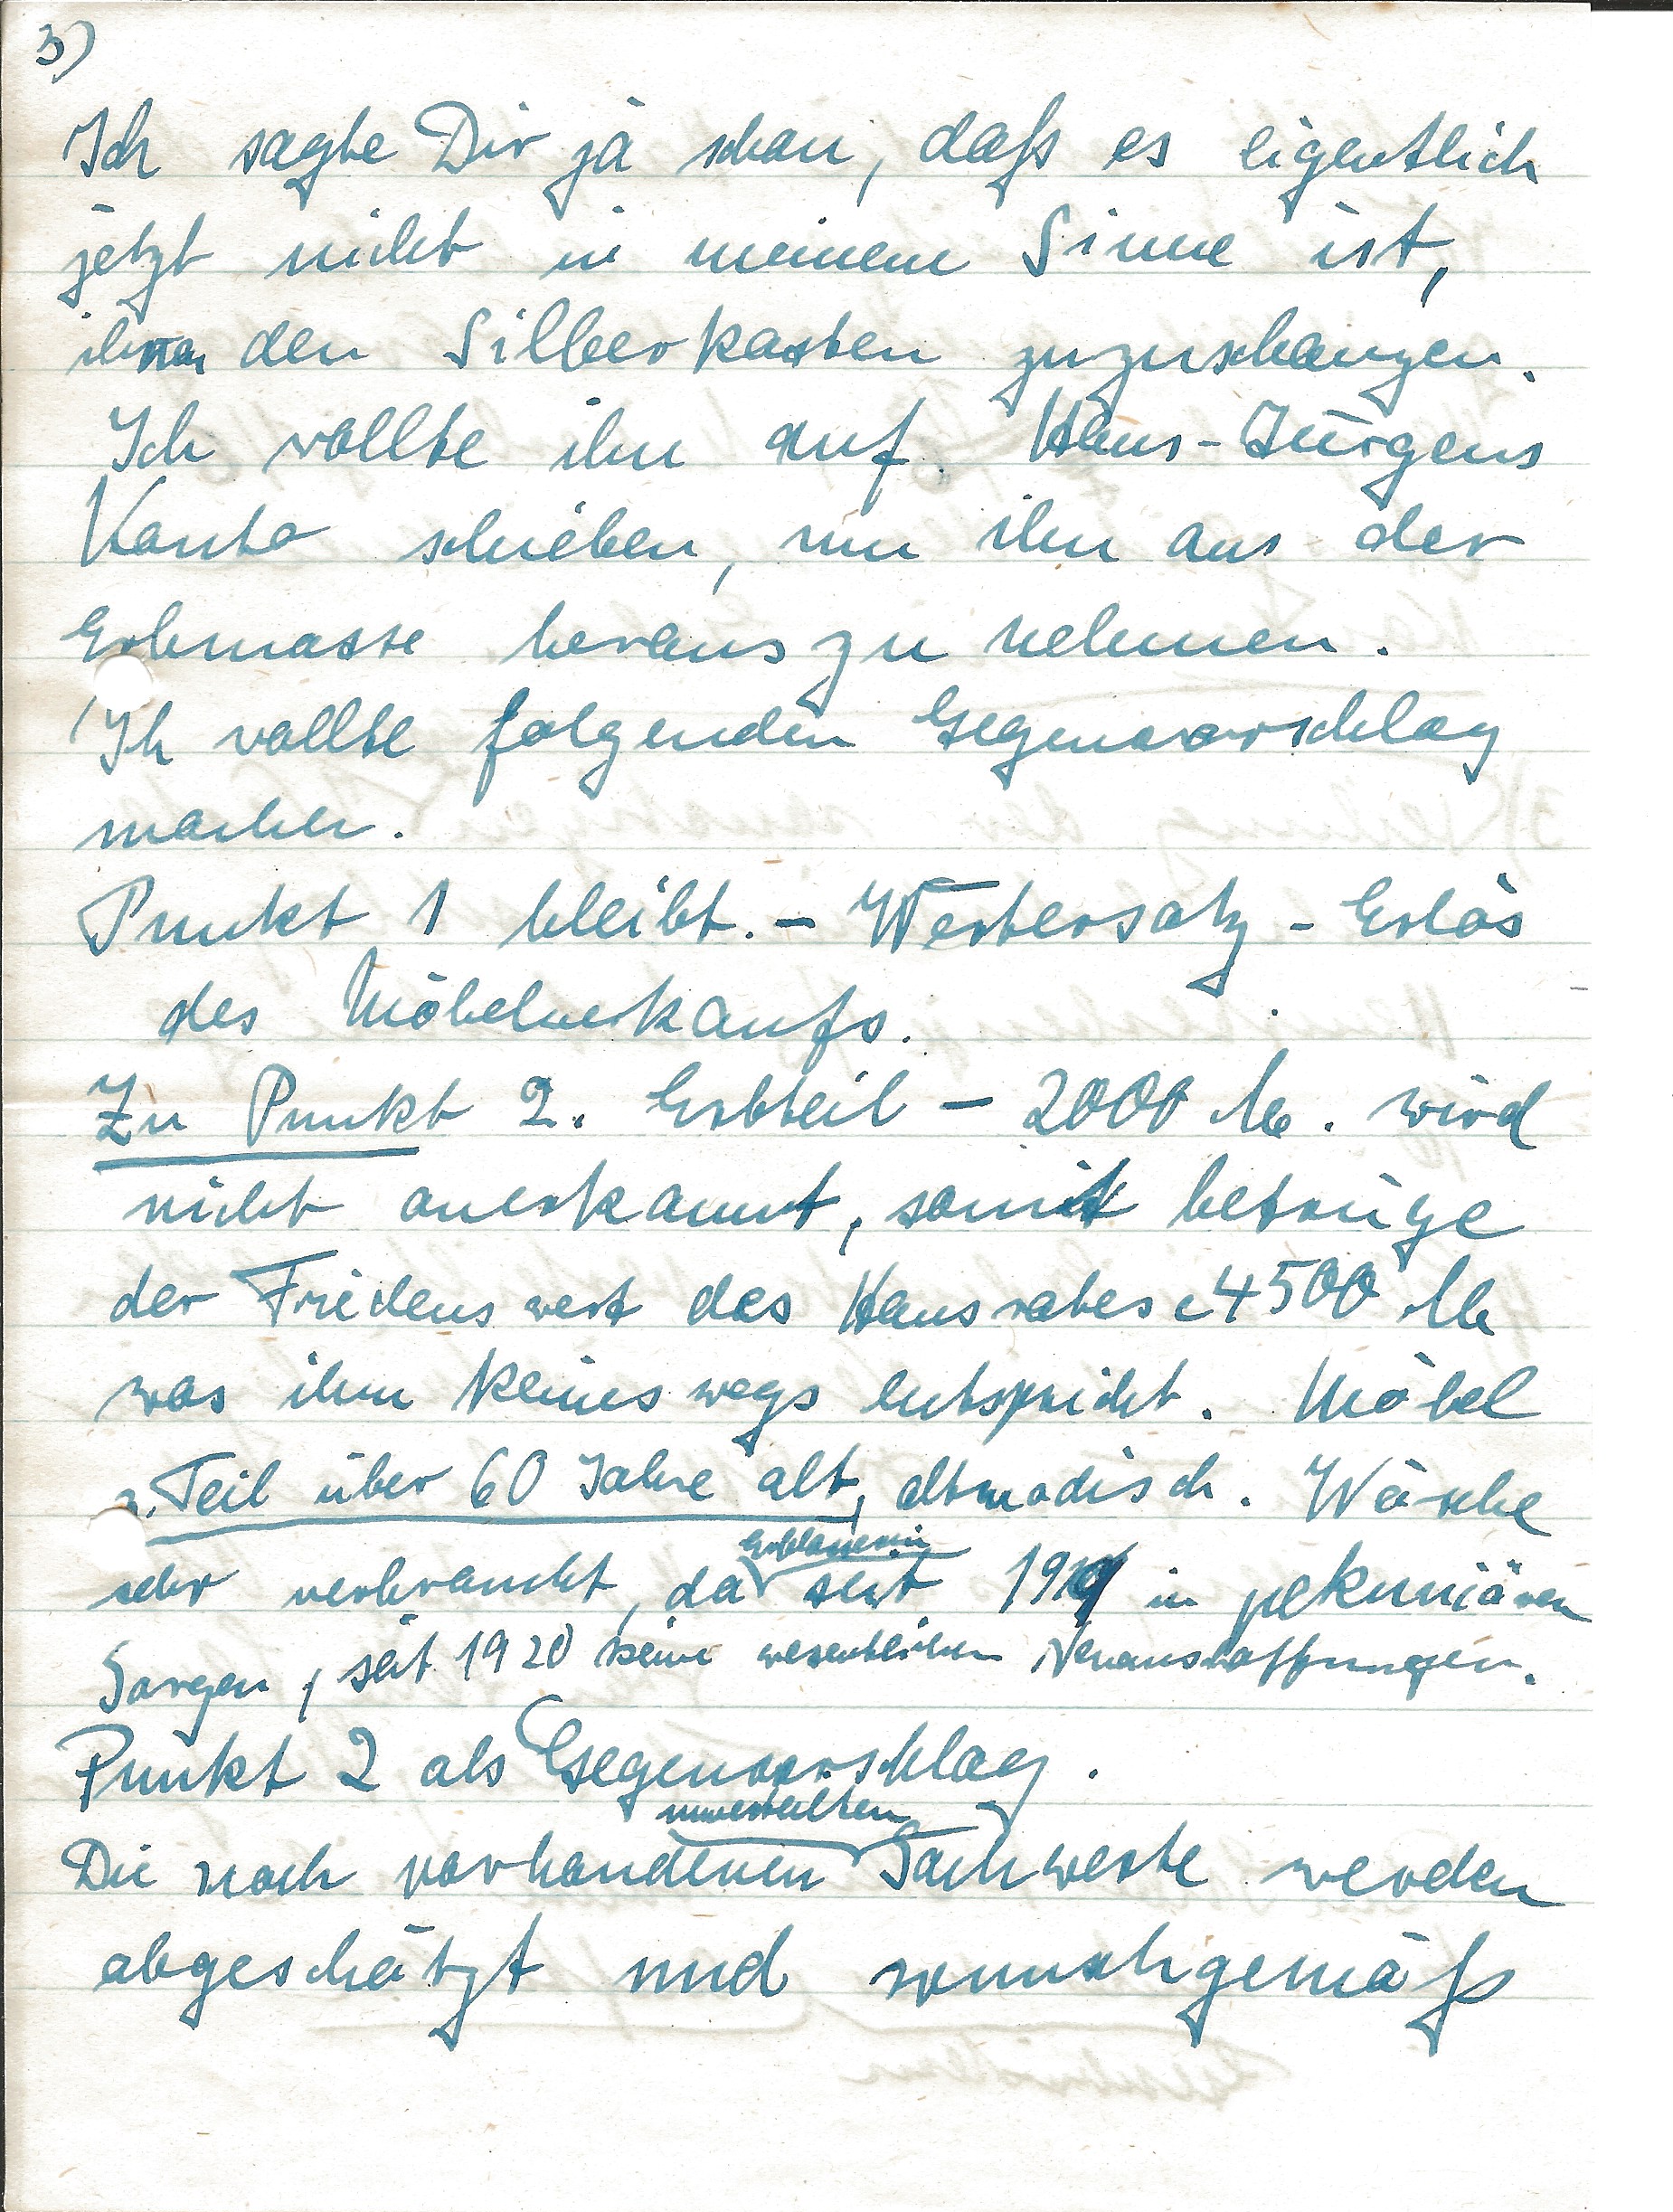 3)
Ich sagte Dir ja schon, daß es eigentlich
jetzt nicht in meinem Sinne ist,
den Silberkasten zuzuschanzen.
Ich wollte ihn auf Hans-Jürgens
Konto schieben, um ihn aus der
Erbmasse herauszunehmen.
Ich wollte folgenden Gegenvorschlag
machen.
Punkt 1 bleibt. – Wertersatz – Erlös
des Möbelverkaufs.
Zu Punkt 2. Erbteil – 2000 M. wird
nicht anerkannt, somit betrüge
der Friedenswert des Hausrates 4500 M
was ihm keineswegs entspricht. Möbel
z. Teil über 60 Jahre alt, altmodisch. Wäsche
sehr verbraucht, da Erblasserin seit in pekuniären
Sorgen, seit 1920 keine wesentlichen Neuanschaffungen.
Punkt 2 als Gegenvorschlag.
Die noch vorhandenen unverteilten Sachwerte werden
abgeschätzt und wunschgemäß